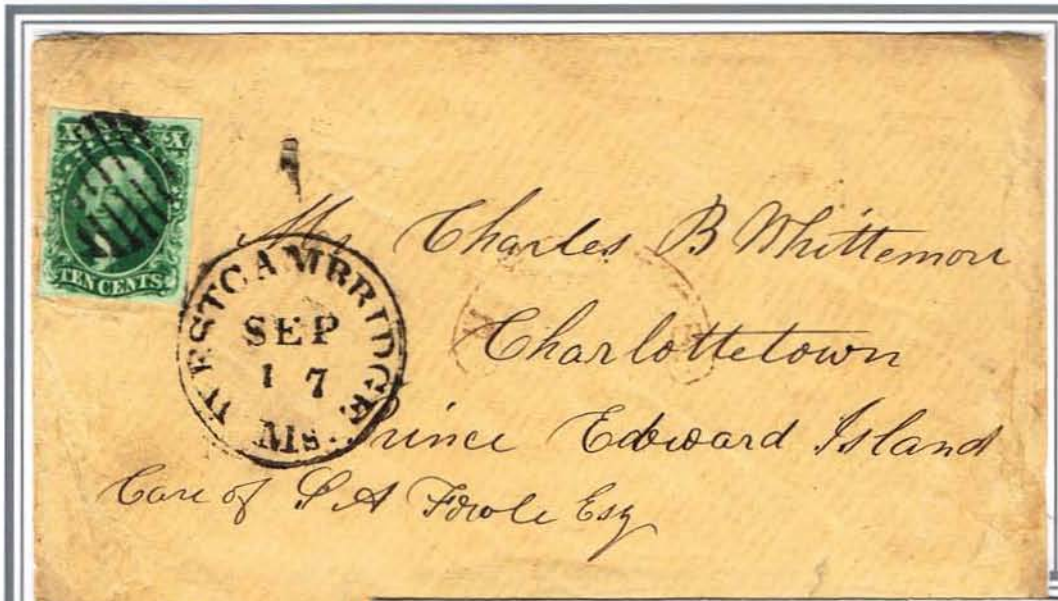 X X
TEN CENTS
WEST CAMBRIDGE
SEP
17
Ms.
Mr Charles B Whittemore
Charlottetown
Prince Edward Island
Care of L A Fowle Esq